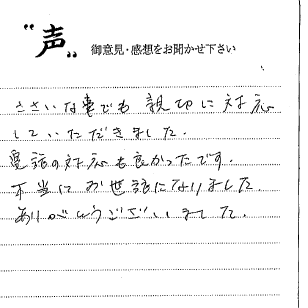 "声" 御意見・感想をお聞かせ下さい
ささいな事でも 親切に対応
していただきました.
電話の対応も良かったです.
本当にお世話になりました.
ありがとうございました.